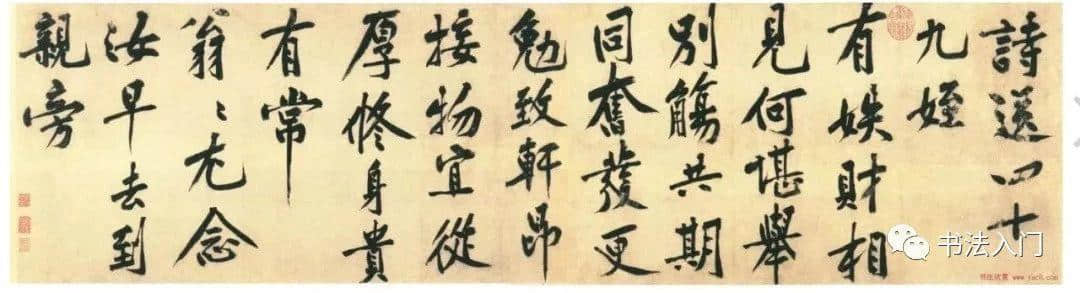 詩送四十
九姪
有娛財相
見何堪舉
別觴共期
同奮發更
勉致軒昂
接物宜從
厚修身貴
有常
翁〻尤念
汝早去到
親旁
书法入门
书法欣赏 www.yac8.com